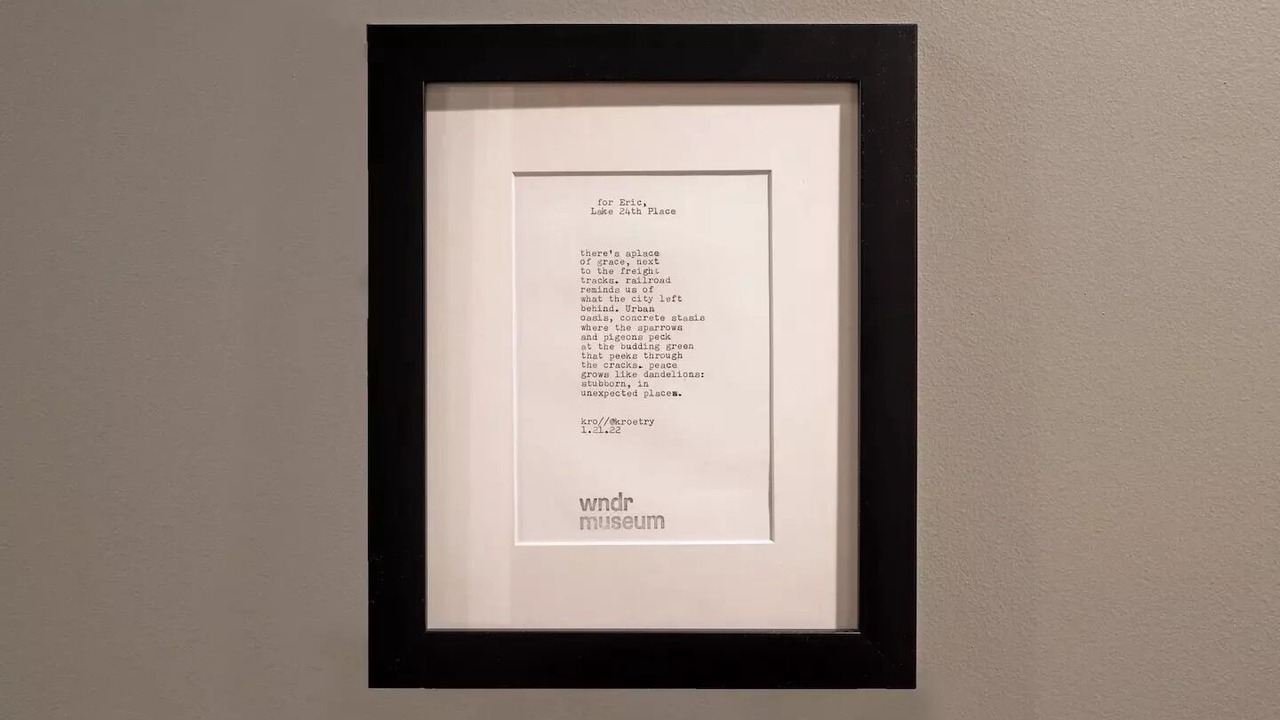 for Eric,
Lake 24th Place
there's aplace
of grace, next
to the freight
tracks. railroad
reminds us of
what the city left
behind. Urban
oasis, concrete stasis
where the sparrows
and pigeons peck
at the budding green
that peeks through
the cracks. peace
grows like dandelions:
stubborn, in
unexpected places.
kro//@kroetry
1.21.22
wndr
museum